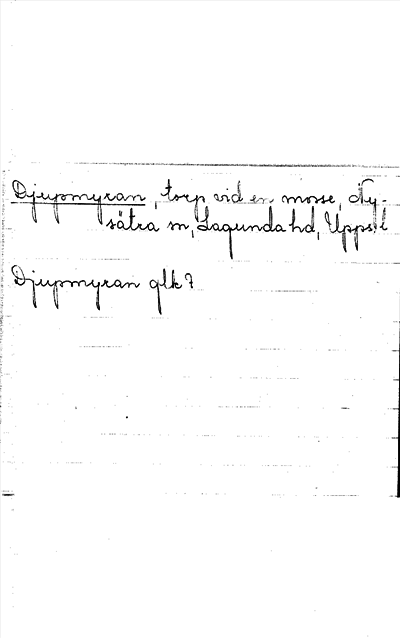 Djupmyran, torp vid en mosse, Ny-
sätra sn, Lagunda hd, Upps. l
Djupmyran glk?